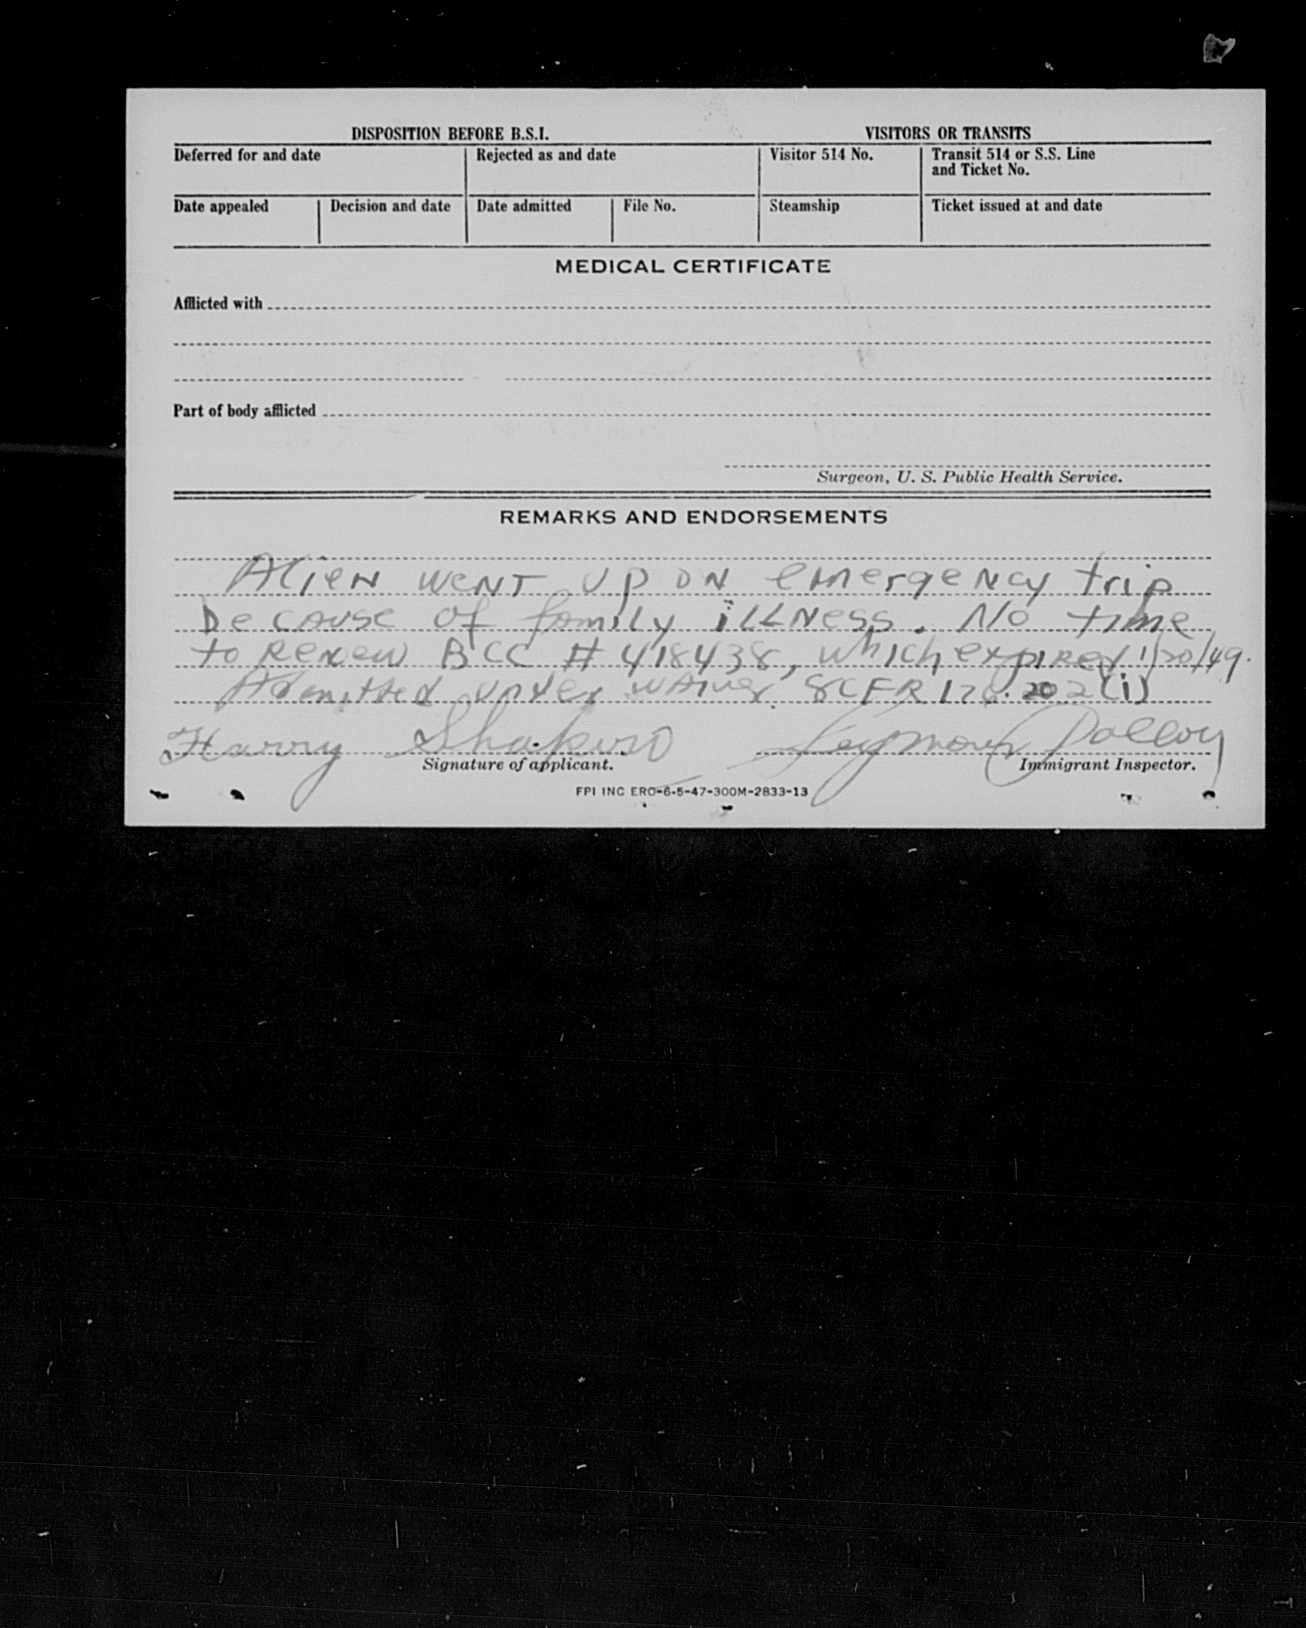 DISPOSITION BEFORE B.S.I. VISITORS OR TRANSITS
Deferred for and date Rejected as and date Visitor 514 No. Transit 514 or S.S. Line
and Ticket No.
Date appealed Decision and date Date admitted File No. Steamship Ticket issued at and date
MEDICAL CERTIFICATE
Afflicted with
Part of body afflicted
Surgeon, U. S. Public Health Service.
REMARKS AND ENDORSEMENTS
Alien went up on emergency trip
because of family illness. No time
to renew BCC # 418438, which expired 1/20/49.
Admitted under waiver 8CFR 176.202(i)
Harry Shapiro Seymour
Signature of applicant. Immigrant Inspector.
FPI INC ERO-6-5-47-300M-2833-13